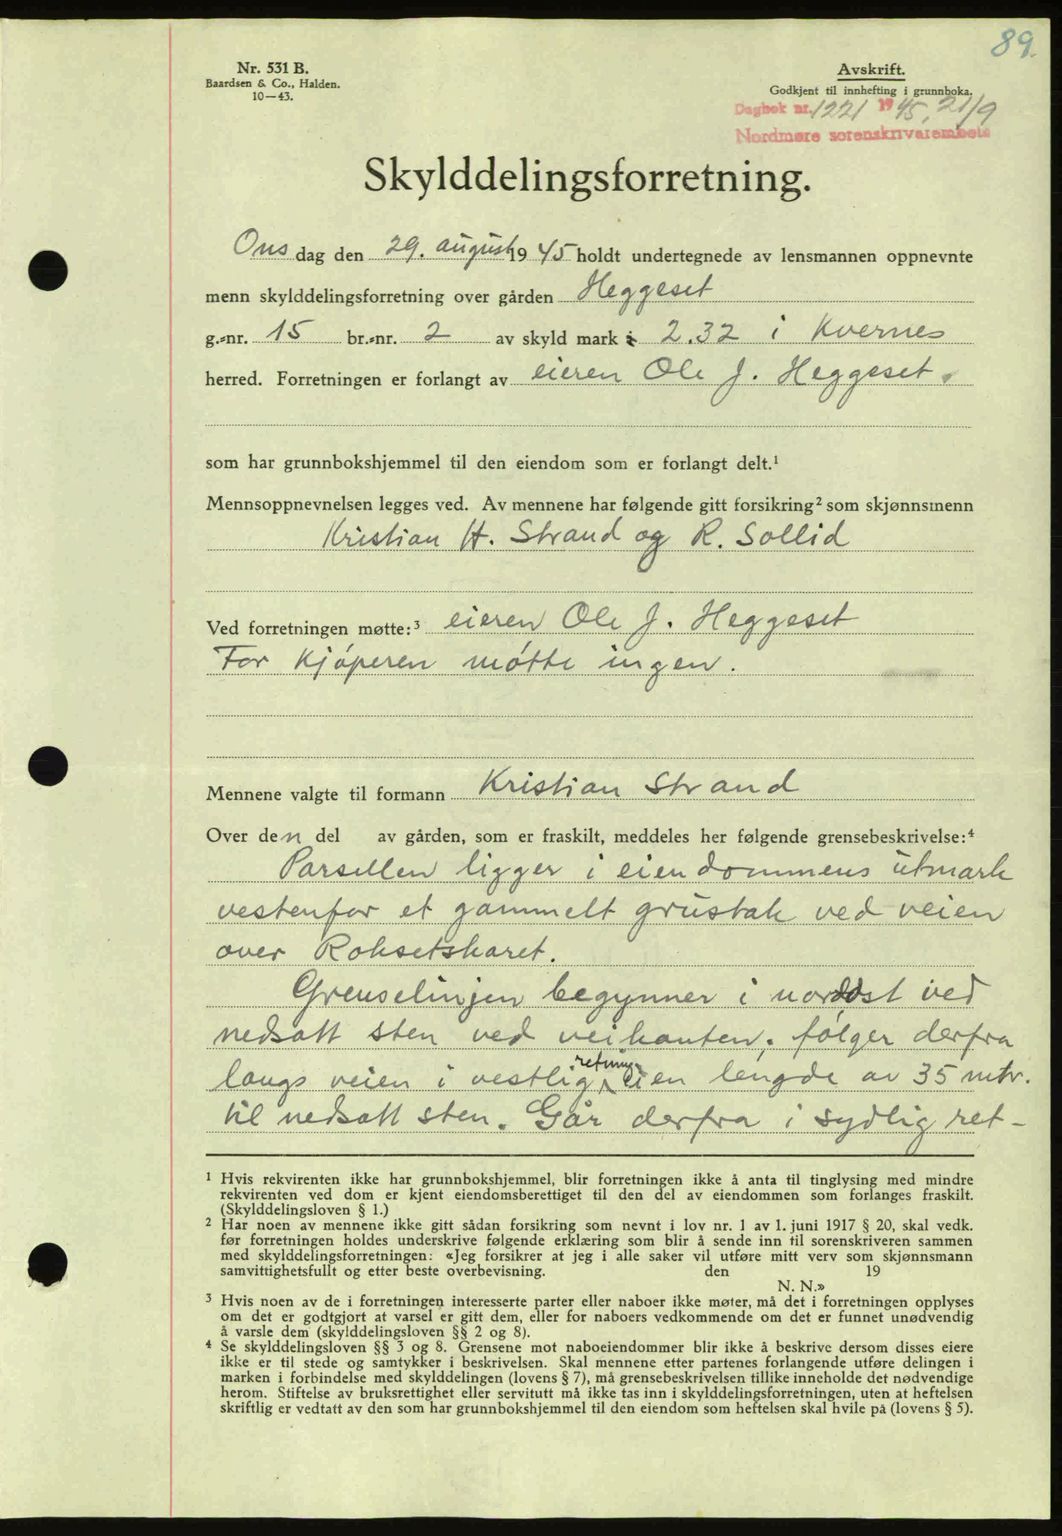 89.
Nr. 531 B.
Baardsen & Co., Halden.
10—43.
Avskrift.
Godkjent til innhefting i grunnboka.
Dagbok nr. 1221 1945, 21/9
Nordmøre sorenskriverembete
Skylddelingsforretning.
Ons dag den 29. august 1945 holdt undertegnede av lensmannen oppnevnte
menn skylddelingsforretning over gården Heggeset
g.-nr. 15 br.-nr. 2 av skyld mark 2.32 i Kvernes
herred. Forretningen er forlangt av eieren Ole J. Heggeset.
som har grunnbokshjemmel til den eiendom som er forlangt delt.¹
Mennsoppnevnelsen legges ved. Av mennene har følgende gitt forsikring² som skjønnsmenn
Kristian H. Strand og R. Sollid
Ved forretningen møtte:³ eieren Ole J. Heggeset
For kjøperen møtte ingen.
Mennene valgte til formann Kristian Strand
Over den del av gården, som er fraskilt, meddeles her følgende grensebeskrivelse:⁴
Parsellen ligger i eiendommens utmark
vestenfor et gammelt grustak ved veien
over Roksetskaret.
Grenselinjen begynner i nordøst ved
nedsatt sten ved veikanten, følger derfra
langs veien i vestlig retning i en lengde av 35 mtr.
til nedsatt sten. Går derfra i sydlig ret-
¹ Hvis rekvirenten ikke har grunnbokshjemmel, blir forretningen ikke å anta til tinglysing med mindre
rekvirenten ved dom er kjent eiendomsberettiget til den del av eiendommen som forlanges fraskilt.
(Skylddelingsloven § 1.)
² Har noen av mennene ikke gitt sådan forsikring som nevnt i lov nr. 1 av 1. juni 1917 § 20, skal vedk.
før forretningen holdes underskrive følgende erklæring som blir å sende inn til sorenskriveren sammen
med skylddelingsforretningen: «Jeg forsikrer at jeg i alle saker vil utføre mitt verv som skjønnsmann
samvittighetsfullt og etter beste overbevisning. den 19
N. N.»
³ Hvis noen av de i forretningen interesserte parter eller naboer ikke møter, må det i forretningen opplyses
om det er godtgjort at varsel er gitt dem, eller for naboers vedkommende om det er funnet unødvendig
å varsle dem (skylddelingsloven §§ 2 og 8).
⁴ Se skylddelingsloven §§ 3 og 8. Grensene mot naboeiendommer blir ikke å beskrive dersom disses eiere
ikke er til stede og samtykker i beskrivelsen. Skal mennene etter partenes forlangende utføre delingen i
marken i forbindelse med skylddelingen (lovens § 7), må grensebeskrivelsen tillike inneholde det nødvendige
herom. Stiftelse av bruksrettighet eller servitutt må ikke tas inn i skylddelingsforretningen, uten at heftelsen
skriftlig er vedtatt av den som har grunnbokshjemmel til den eiendom som heftelsen skal hvile på (lovens § 5).